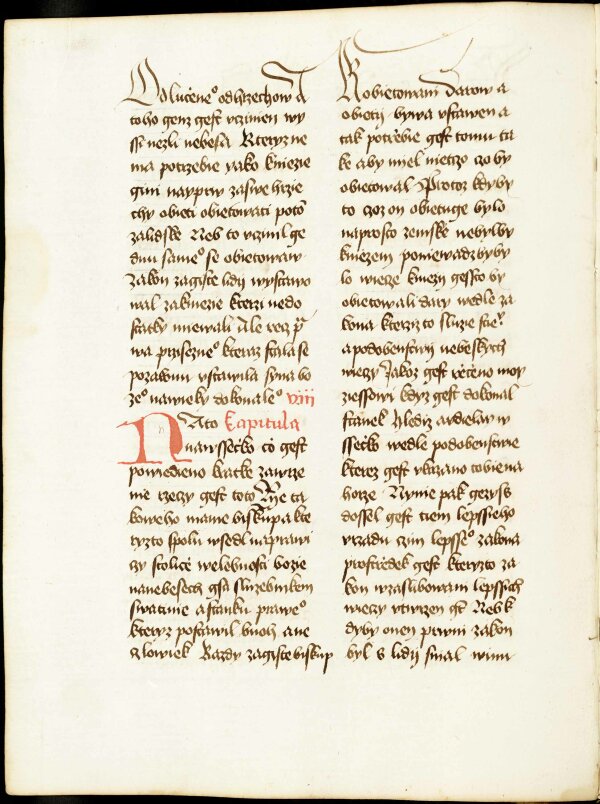 Odlucene° odhrzechow a
toho genz gest vczinien wy
ssi nezli nebesa Kteryz ne
ma potrzebie yako kniezie
gini nayprw zaswe hrzie
chy obieti obietowati poto̅
zalidske Neb to vczinil ge
dnu same° se obietowaw
zakon zagiste lidi wystawo
wal zakniezie kterzi nedo
statky miewali Ale rzecz p̅r
wa przisezne° kteraz stala se
pozakonu vstawila syna bo
ze° nawieky dokonale° viii
Nato Capitula
nawssecko co̅ gest
powiedieno kratke zawrze
nie rzeczy gest toto Mye ta
koweho mame biskupa kte
ryzto spolu wsedl naprawi
czy stolice welebnosti bozie
nanebesech gsa sluzebnikem
swatinie astanku prawe°
kteryz postawil buoh ane
czlowiek Kazdy zagiste biskup
Kobietowani darow a
obieti bywa vstawen a
tak potrebie gest tomu ta
ke aby miel nietczo czo by
obietowal Protoz kdyby
to czoz on obietuge bylo
naprosto zemske nebylby
kniezem poniewadzbyby
lo wiecze kniezi gessto by
obietowali dary wedle za
kona kterzizto sluzie stie°
apodobenstwi nebeskych
wieczy Jakoz gest rzeceno moy
ziessowi kdyz gest dokonal
stanek Hlediz avdielaw w
ssecko wedle podobenstwie
kterez gest vkazano tobiena
horze Nynie pak gezyss
dossel gest tiem lepssieho
vrzadu czim lepsse° zakona
prostrzedek gest kteryzto za
kon wzaslibowani lepssich
wieczy vtwrzen gt Neb k
dyby onen prwni zakon
byl s lidi snial winu